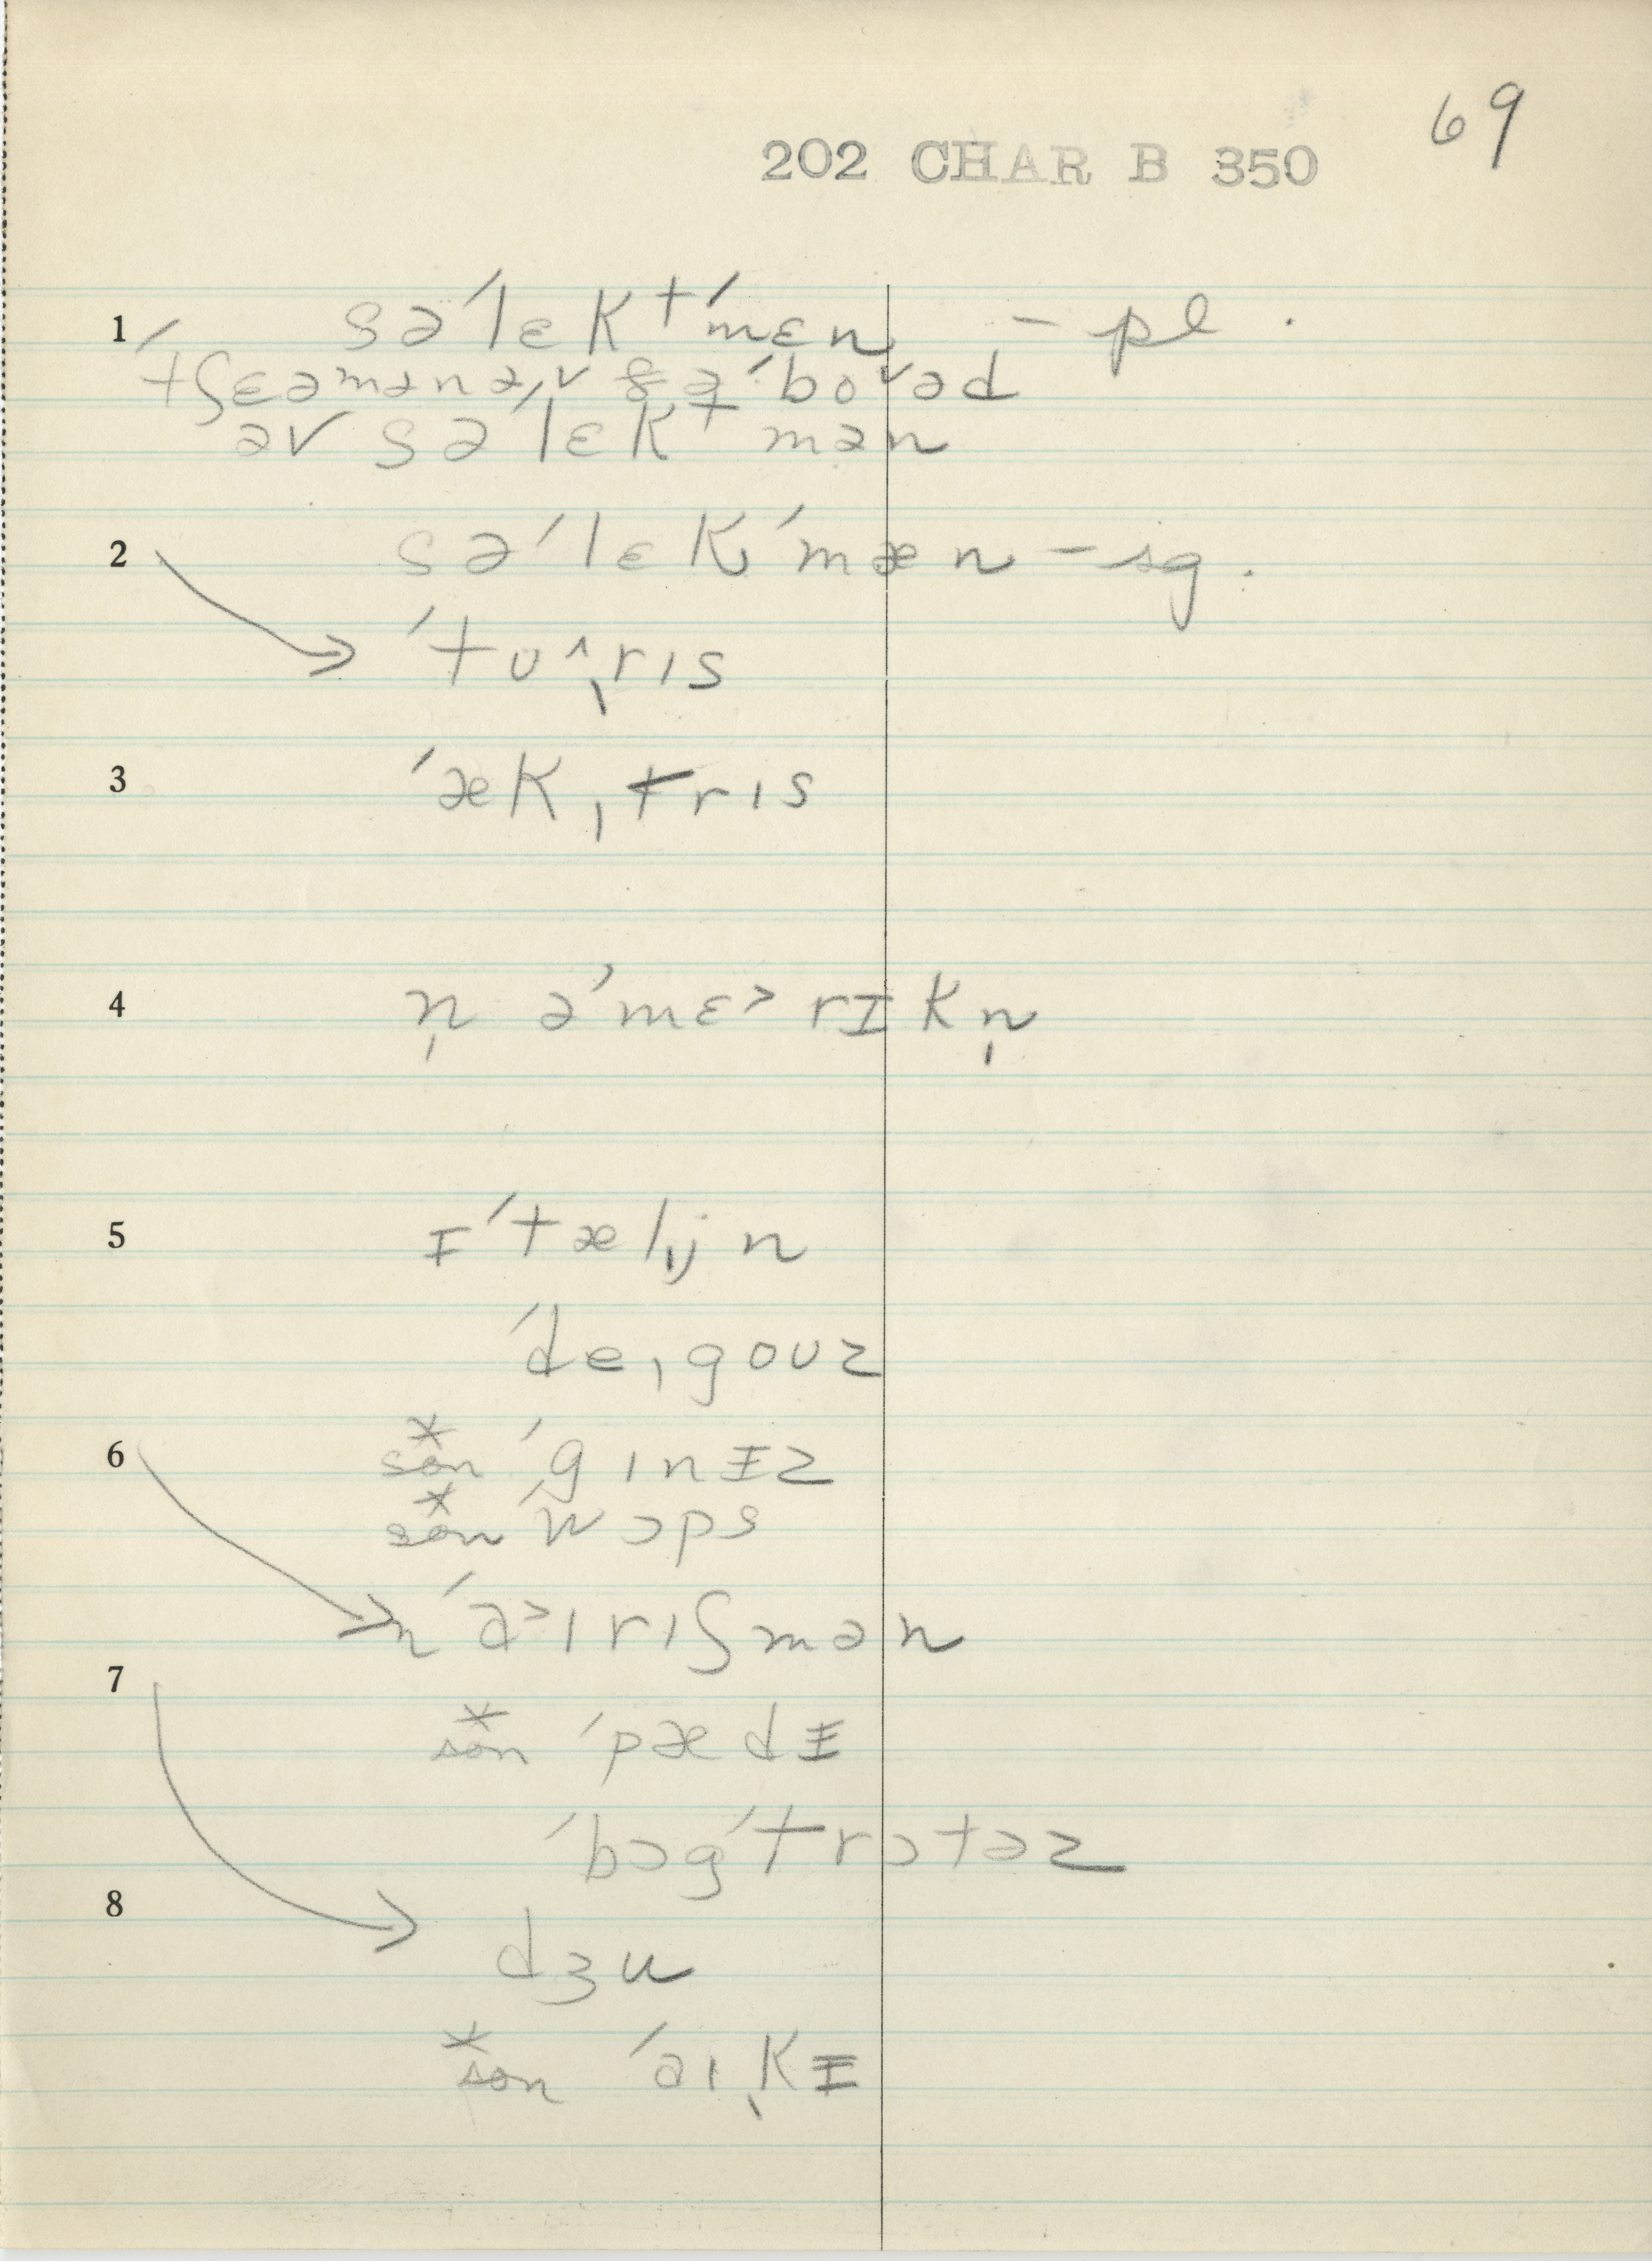 69
202 CHAR B 350
1 sə´lɛk⁺´mɛn – pl.
´tʃɛəmənə,v ðə´bo˅əd
əv sə´lɛk⁺mən
2 sə´lɛk´mæn – sg.
´tʊ^ˌrɪs
3 ´ækˌtrɪs
4 n̩ ə´mɛ˃rɪkn̩
5 ɪ´tæl̩jn
´deˌgoʊz
6 són* ´gɪnɪz
són* ´wɔps
n´a˃ɪrɪʃmən
7 són* ´pædɪ
´bɔg´trɔtəz
8 dʒu
són* ´aɪˌkɪ